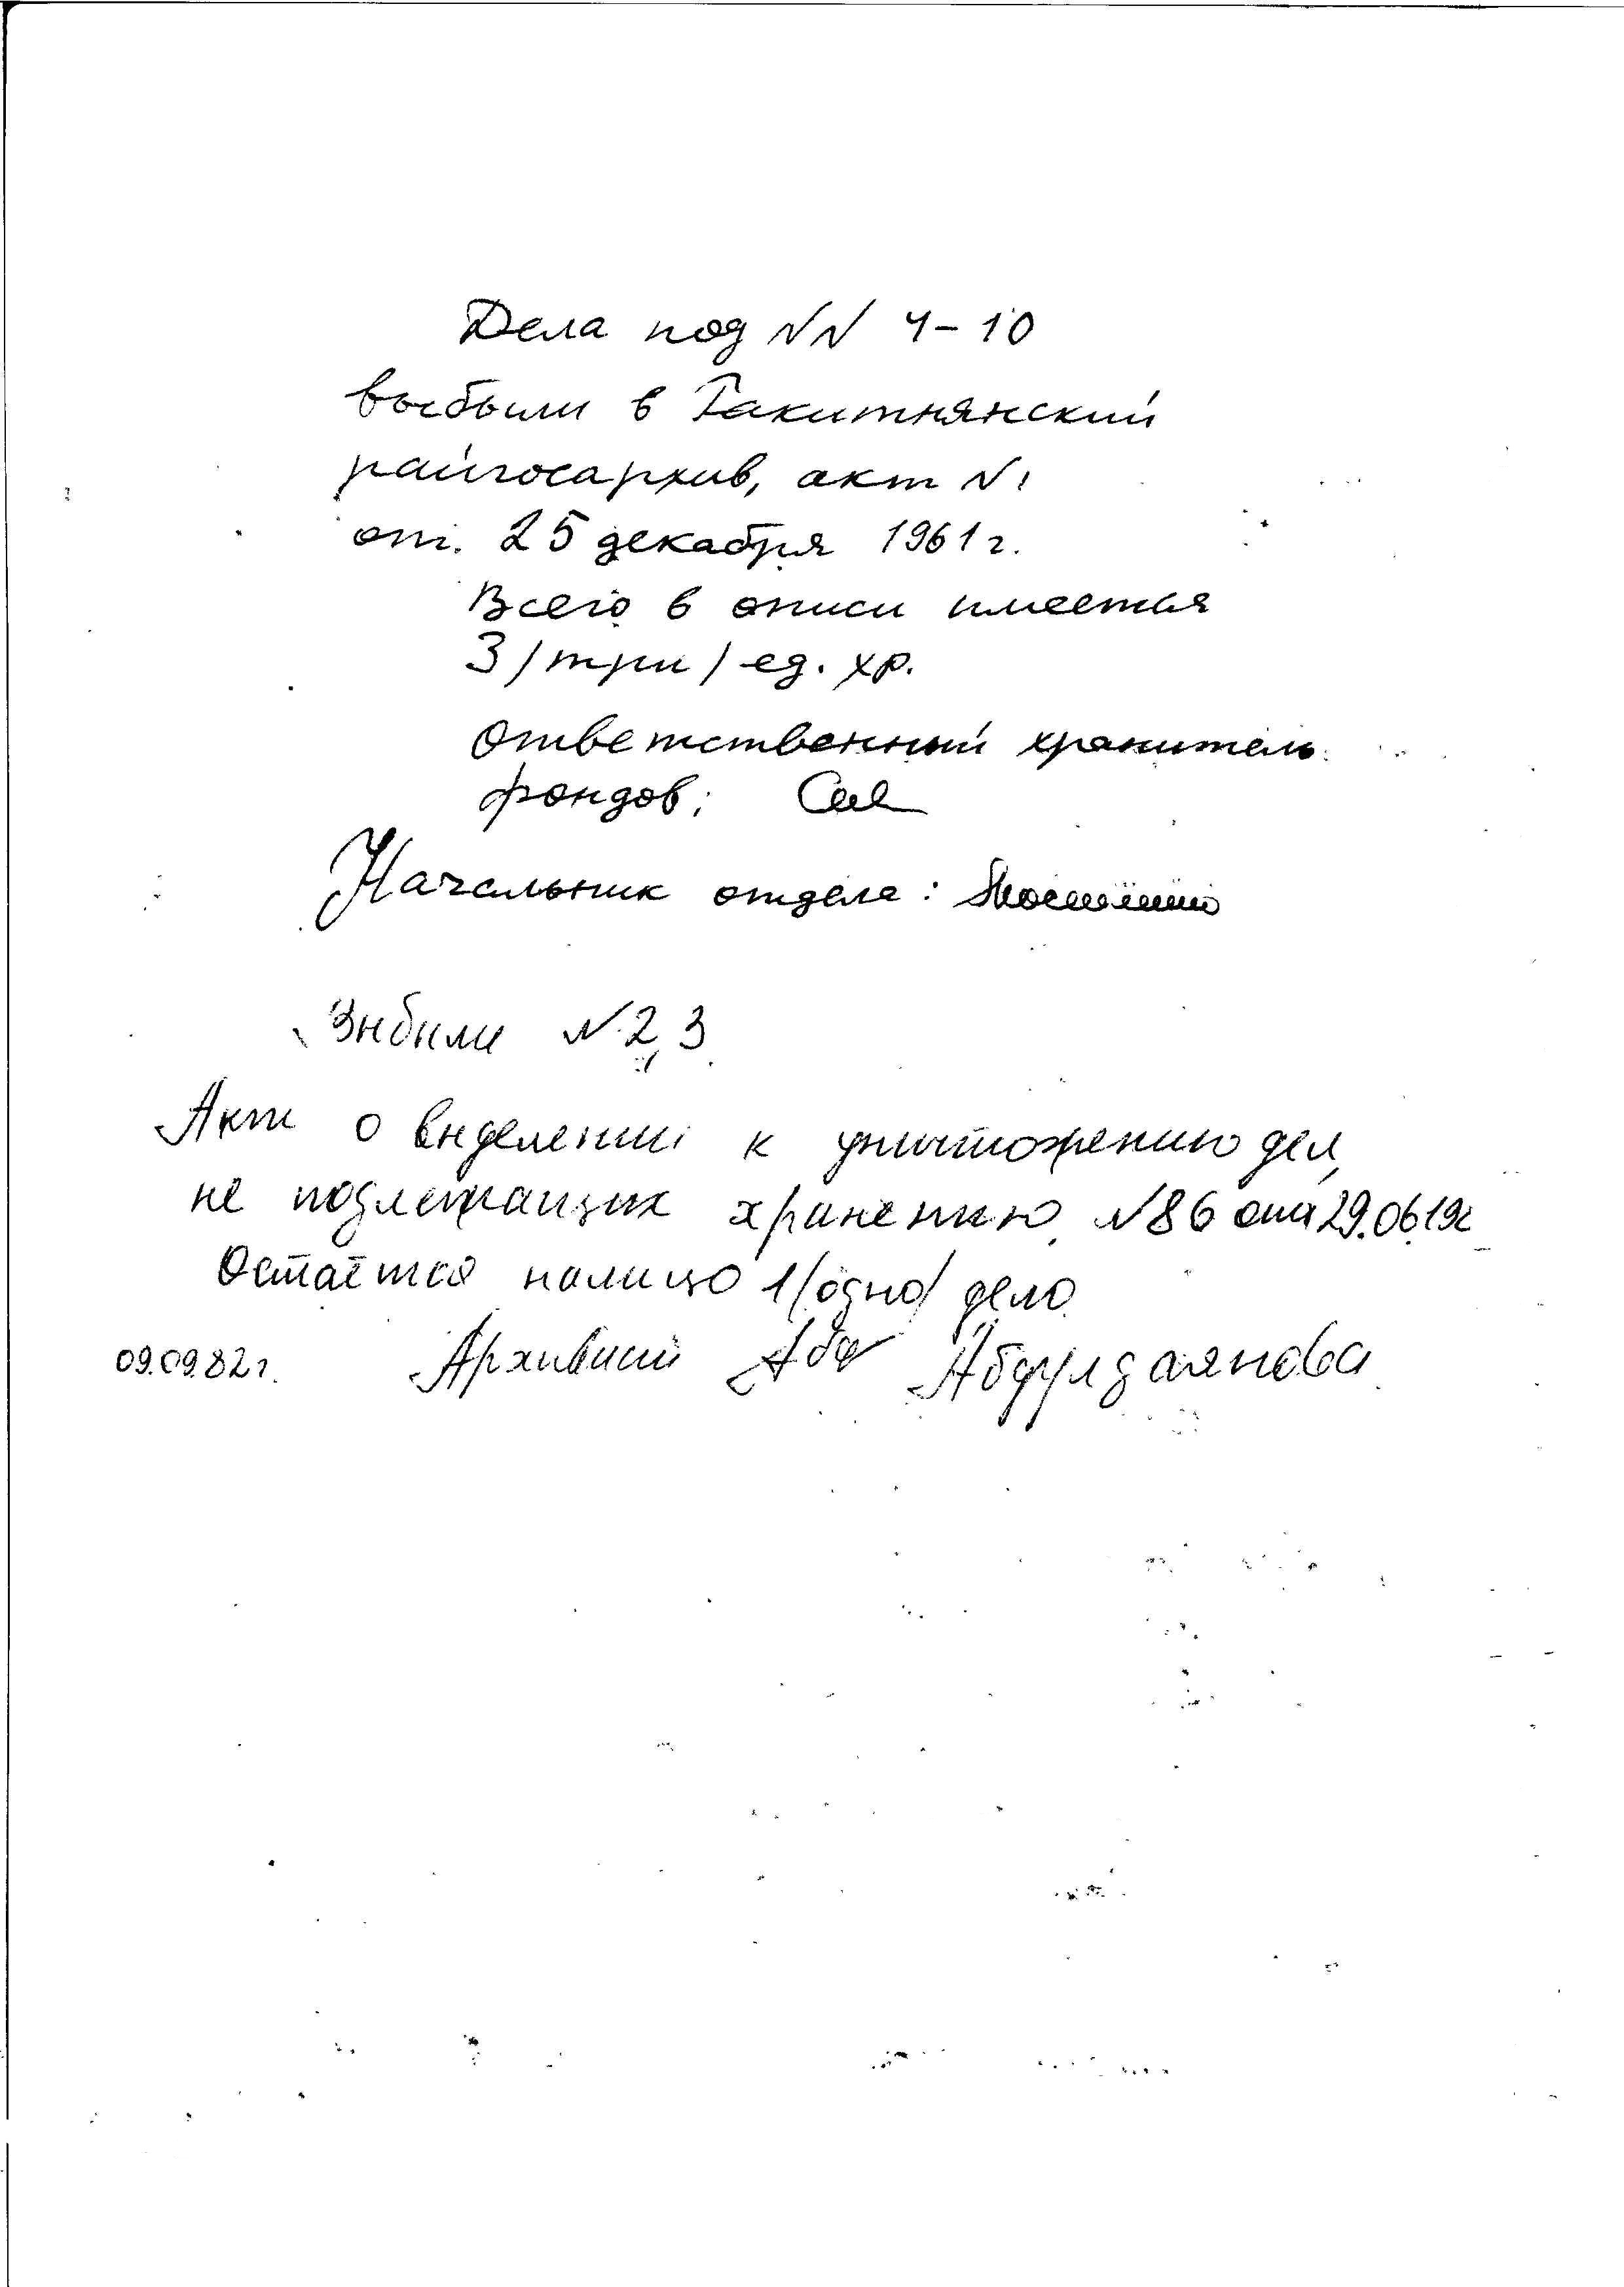 Дела под NN 4-10
выбыли в Ракитнянский
райгосархив, акт N1
от. 25 декабря 1961г.
Всего в описи имеется
3/три/ ед. хр.
Ответственный хранитель
фондов:
Начальник отдела:
Выбыли N 2,3
Акт о выделении к уничтожению дел,
не подлежащих хранению N86 от 29.06.19
Остаётся налицо 1/одно/ дело
09.09.82г. Архивист Абдулдаянова